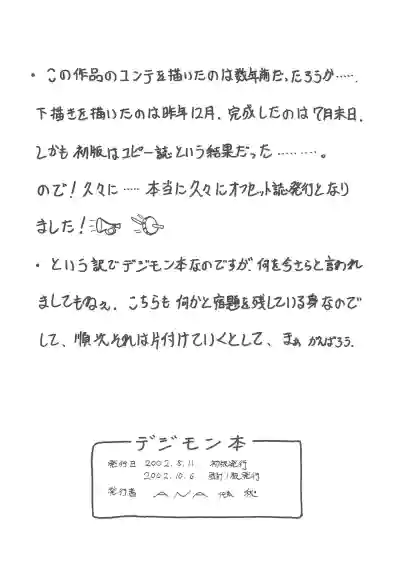 ・この作品のコンテを描いたのは数年前だったろうか……。
下描きを描いたのは昨年12月、完成したのは7月末日、
しかも初版はコピー誌という結果だった………。
ので！久々に……本当に久々にオフセット誌発行となり
ました！
・という訳でデジモン本なのですが、何を今さらと言われ
ましてもねぇ、こちらも何かと宿題を残している身なので
して、順次それは片付けていくとして、まぁがんばろう。
デジモン本
発行日 2002.8.11 初版発行
2002.10.6 改訂1版発行
発行者 ANA